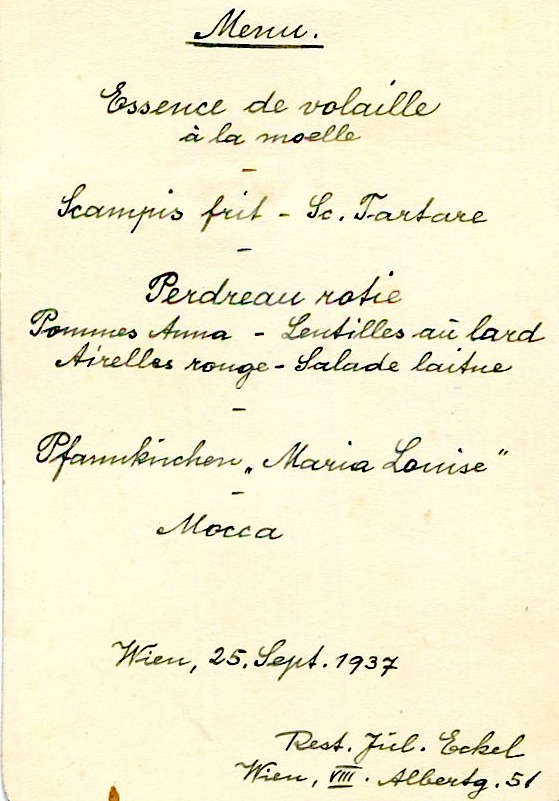 Menu.
Essence de volaille
à la moelle
-
Scampis frit - Sc. Tartare
-
Perdreau rotie
Pommes Anna - Lentilles au lard
Airelles rouge - Salade laitue
-
Pfannkuchen „Maria Louise"
-
Mocca
Wien, 25. Sept. 1937
Rest. Jul. Eckel
Wien, VIII. Albertg. 51